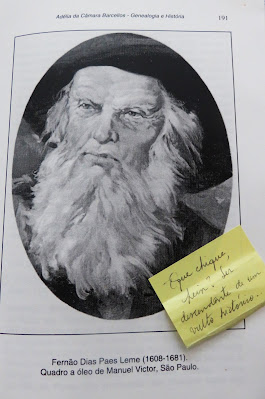 Adélia da Câmara Barcellos - Genealogia e História
191
- Que chique,
hein? Ser
descendente de um
vulto histórico...
Fernão Dias Paes Leme (1608-1681).
Quadro a óleo de Manuel Victor, São Paulo.